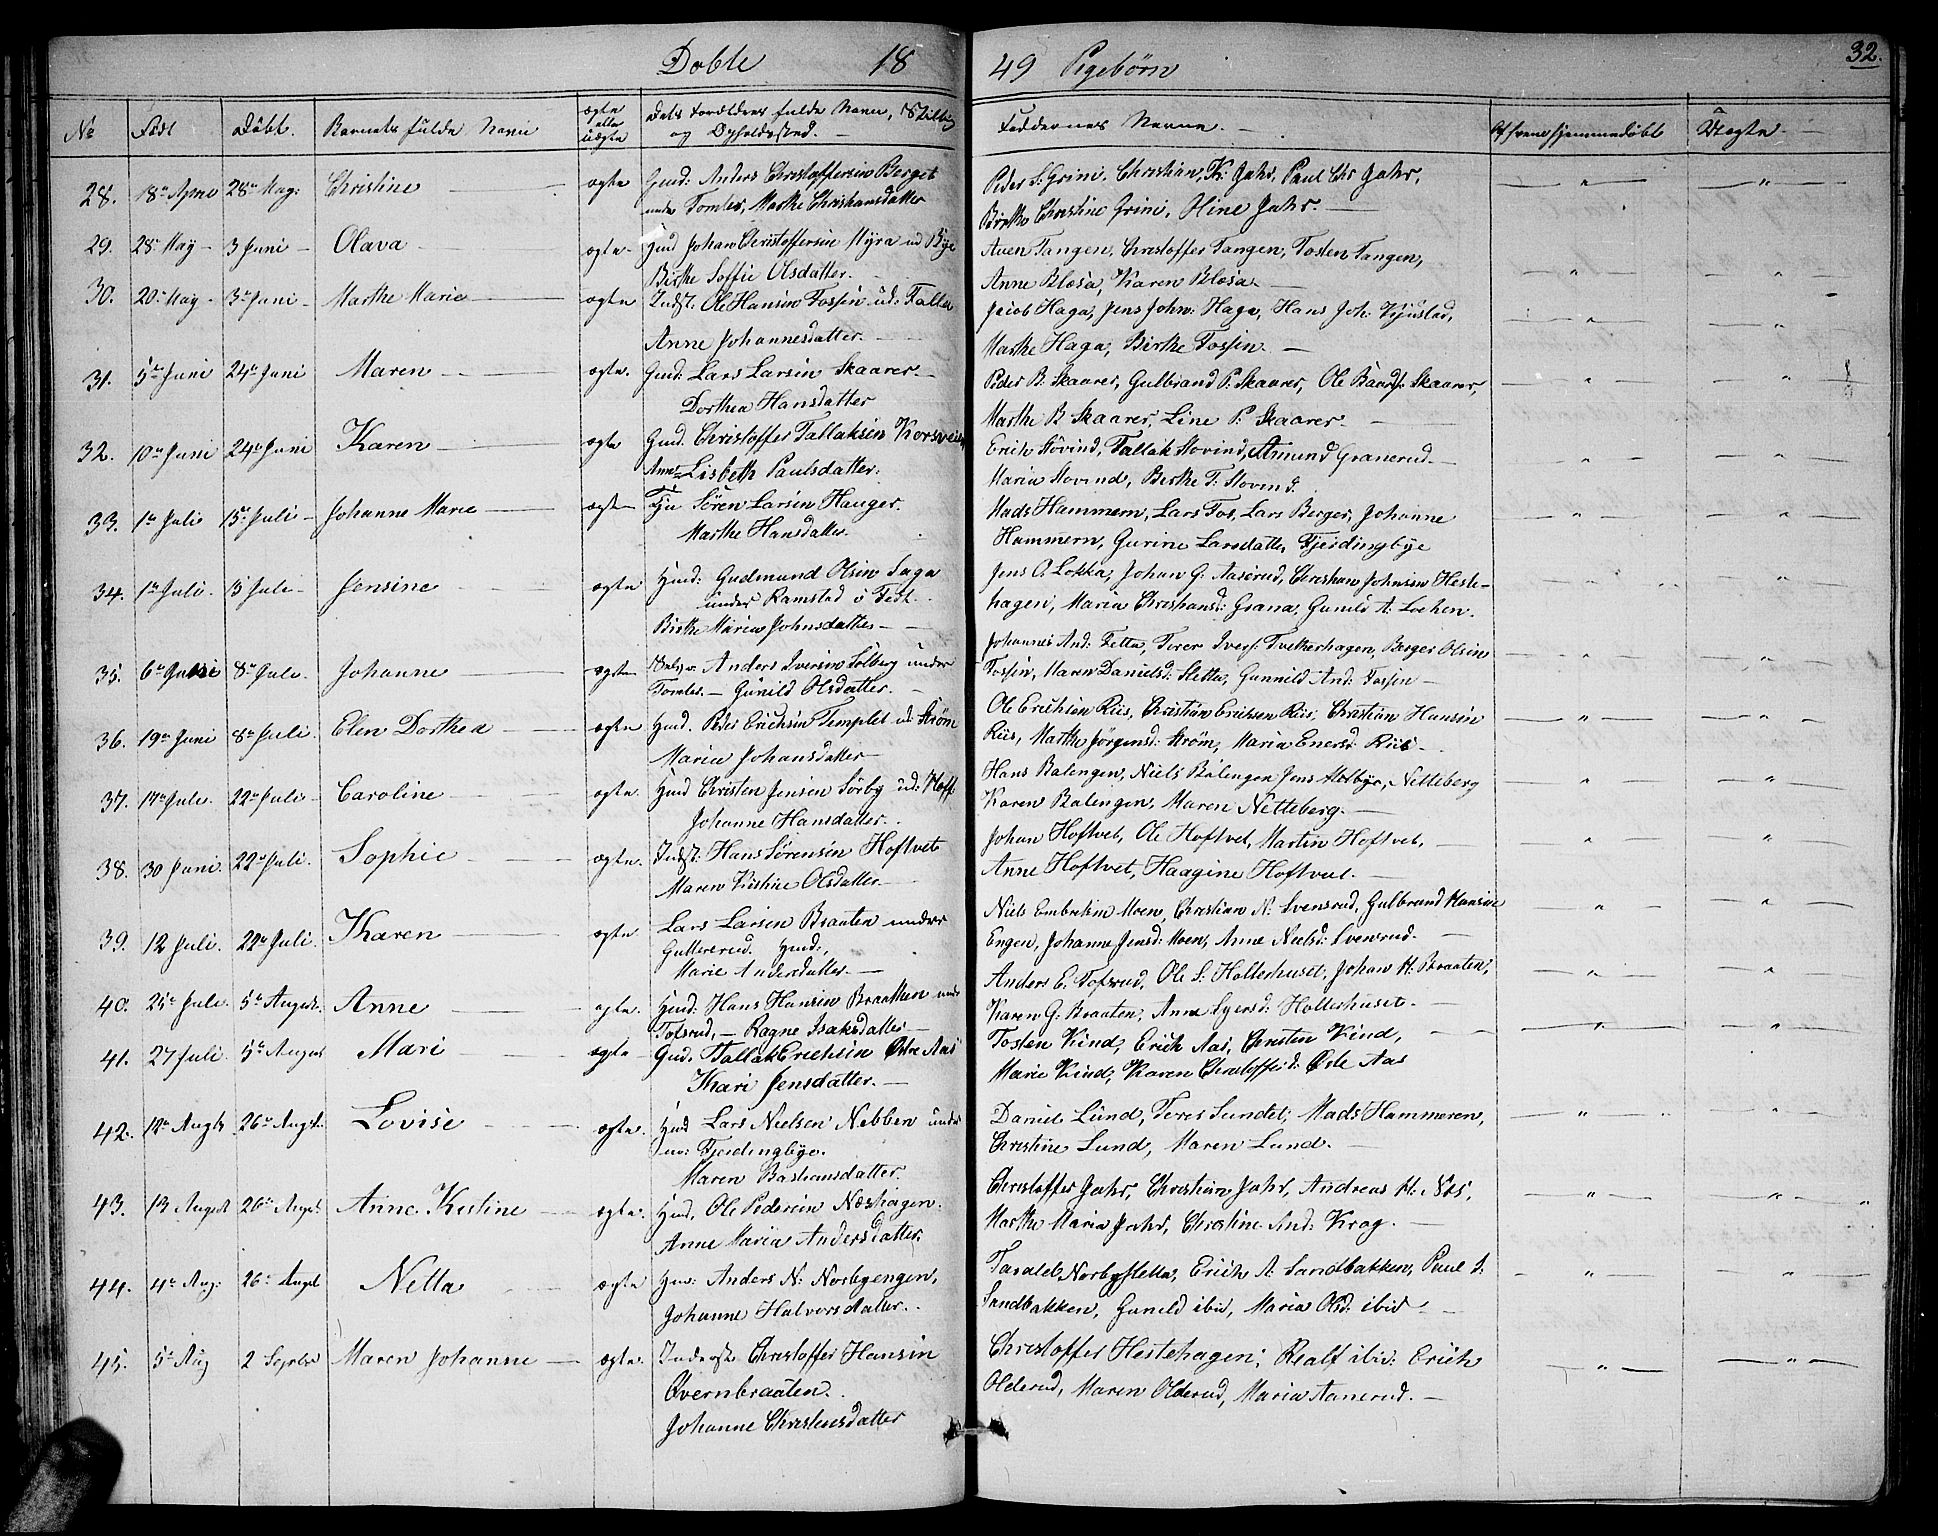 Døbte 18
49 Pigebørn
32.
No Født Døbt. Barnets fulde Navn ægte eller uægte Dets Forældres fulde Navn, Stilling og Opholdssted.
Faddernes Navne. Hjemmedøbt Uægte
28. 18de 28de May: Christine ægte Gmd: Anders Christoffersen Berget
under Tomler, Marthe Christiansdatter
Peder S: Grini, Christian K: Jahr, Paul Chr Jahr,
Birthe Christine Grini, Oline Jahr.
29. 28 May 3 Juni Olava ægte Hmd Johan Christoffersen Myra ud Bye
Birthe Soffie Olsdatter.
Aven Tangen, Christoffer Tangen, Tosten Tangen,
Anne Blæsa, Karen Blæsa
30. 20 May 3 Juni Marthe Marie ægte Indst: Ole Hansen Fossen ud: Falla
Anne Johannesdatter.
Jacob Haga, Jens John: Haga, Hans Joh:
Marthe Haga, Birthe Fossen.
31. 5te Juni 24de Juni Maren ægte. Gmd: Lars Larsen Skaarer
Dorthea Hansdatter
Peder B. Skaarer, Gulbrand P. Skaarer, Ole Baards: Skaarer,
Marthe B Skaarer, Line P. Skaarer.
32. 10de Juni 24de Juni Karen ægte Gmd. Christoffer Tallaksen Korsveien
Anne Lisbeth Paulsdatter.
Erich Hovind, Tallak Hovind, Amund Granerud
Maria Hovind, Birthe T: Hovind.
33. 1de Juli 15de Juli Johanne Marie ægte Søren Larsen Hauger.
Marthe Hansdatter.
Mads Hammern, Lars Fos, Lars Berger, Johanne
Hammern, Gurine Larsdatter Fjeldingbye
34. 1de Juli. 15 Juli Jensine ægte Hmd: Gudmund Olsen Saga
under Ramstad i Fedt.
Birthe Maria Johnsdatter
Jens O. Løkka, Johan G. Aaserud, Christian Johnsen Heste-
hagen, Maria Christiansd: Grana, Gunild A. Lochen.
35. 6te Juni 8de Juli. Johanne ægte Anders Iversen Solberg under
Tomler. Gunild Olsdatter.
Johannes And: Fetta, Torer Ivers: Tvetterhagen, Berger Olsen
Fossen, Maren Danielsd: Sletta, Gunnild And: Fossen
36. 19de Juni 8de Juli. Elen Dorthea ægte Hmd. Peder Erichsen Templet ud: Strøm
Maria Johansdatter
Ole Erichsen Riis, Christian Erichsen Riis, Christian Hansen
Riis, Marthe Jørgensd: Strøm, Maria Enersd: Riis
37. 17de Juli. 22de Juli Caroline ægte Hmd Christen Jensen Sørby ud: Hoff
Johanne Hansdatter.
Hans Balengen, Niels Balengen Jens Netteberg
Karen Balengen, Maren Netteberg.
38. 30 Juni. 22de Juli. Sophie ægte. Indst: Hans Sørensen Hoftvet
Maren Kistine Olsdatter
Johan Hoftvet, Ole Hoftvet, Martin Hoftvet,
Anne Hoftvet, Haagine Hoftvet.
39. 12 Juli. 22de Juli. Karen ægte Lars Larsen Braaten under
Gullererud. Hmd:
Marie Andersdatter.
Niels Embretsen Moen, Christian N. Svensrud, Gulbrand Hansen
Engen, Johanne Jensd: Moen, Anne Nielsd: Svensrud.
40. 25de Juli. 5te August. Anne ægte. Hmd: Hans Hansen Braatten under
Tofsrud, Ragne Isaksdatter
Anders E. Tofsrud, Ole S. Holterhuset, Johan H. Braaten,
Karen G. Braaten, Anne Syversd: Holterhuset.
41. 27 Juli. 5te August Mari ægte Gmd. Tallak Erichsen Østre Aas
Kari Jensdatter.
Tosten Kind, Erich Aas, Christen Kind,
Marie Kind, Karen Christoffersd: Østre Aas
42. 12te Augst. 26de Augst. Lovise ægte. Hmd Lars Nielsen Nebben under
Fjeldingbye.
Maren Bastiansdatter.
Daniel Lund, Torer Sundet, Mads Hammeren,
Christine Lund, Maren Lund.
43. 13 August 26de August. Anne Kistine ægte. Hmd. Ole Pedersen Næshagen.
Anne Maria Andersdatter.
Christoffer Jahr, Christian Jahr, Andreas H. Næs,
Marthe Maria Jahr, Christine And: Krog.
44. 4de Aug: 26de August Netta ægte Hmd: Anders N: Norbyengen,
Johanne Halvorsdatter.
Taralds Norbysletta, Erich A. Sandbakken, Paul S.
Sandbakken, Gunild ibid, Maria Olsd. ibid
45. 5te Aug 2 Septbr Maren Johanne ægte. Inderst Christoffer Hansen
Qvernbraaten.
Johanne Christensdatter
Christoffer Hestehagen, Realf ibid: Erich
Olderud, Maren Olderud, Maria Aanerud.